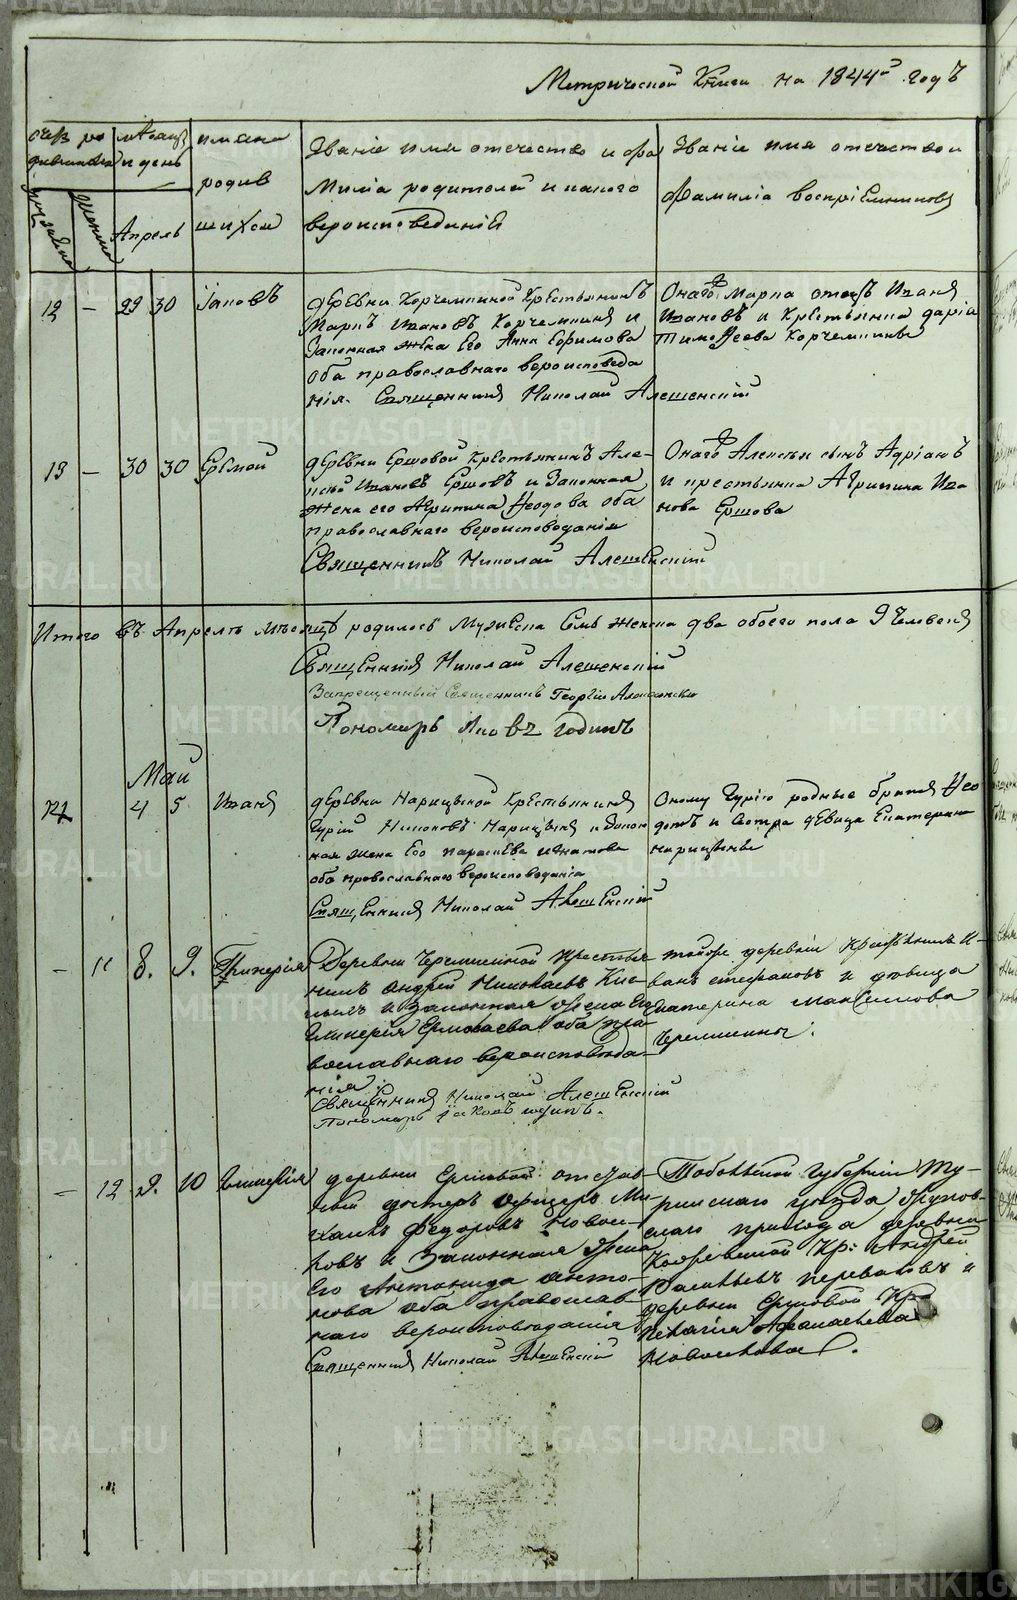 Метрической Книги на 1844й годъ
мѣсяцъ
и день
Апрель
имяна
родив
шихся
Званіе имя отечество и фа
милія родителей и какого
вероисповеданія
Званіе имя отечество и
фамилія воспріемниковъ
12 — 29 30 Іаковъ
деревни Корчемкиной Крестьянинъ
Маркъ Ивановъ Корчемкинъ и
Законная жена его Анна Ефимова
оба православнаго вероисповеда
нія. Священникъ Николай Алешенскій
Онаго Марка отецъ Иванъ
Ивановъ и Крестьянка дарія
Тимофеева Корчемкины
13 — 30 30 Еремей
деревни Ершовой Крестьянинъ Але-
ксѣй Ивановъ Ершовъ и Законная
жена его Агрипина Федова оба
православнаго вероисповеданія
Священникъ Николай Алешенскій
Онаго Алексѣя сынъ Адріанъ
и крестьянка Агрипина Ива
нова Ершова
Итого въ Апрелѣ мѣсяцѣ родилось Мужеска Семь женска два обоего пола 9 Человекъ
Священникъ Николай Алешенскій
Запрещенный Священникъ Георгій
Пономарь Яковъ
Май
4 5 Иванъ
деревни Нарицыной Крестьянинъ
Гурій Никоновъ Нарицынъ и Закон
ная жена Его Парасьева Игнатова
оба православнаго вероисповеданія
Священникъ Николай Алешенскій
Оному Гурію родные братъ Фео
дотъ и Сестра девица Екатерина
нарицыны
— 11 8. 9. Гликерія
Деревни Черемшиной Крестья
нинъ Андрей Николаевъ
и Законная жена Его
Гликерія Ермолаева оба пра
вославнаго вероисповѣда
нія
Священникъ Николай Алешенскій
Пономарь Іаковъ
тойже деревни Крестьянинъ И-
ванъ стефановъ и дѣвица
Катерина Максимова
Черемшины.
— 12 9. 10 Гликерія
деревни Ершовой отстав
ной Офицеръ Ми
хаилъ Федоровъ Новосе
ловъ и Законная жена
Его Антонида Анто-
нова оба православ-
наго вероисповѣданія
Священникъ Николай Алешенскій
Тобольской Губерніи Ту-
ринскаго уѣзда
скаго прихода деревни
Кр: Андрей
Васильевъ Переваловъ и
деревни Ершовой Кр:
Пелагія Афанасьева
Новоселова.